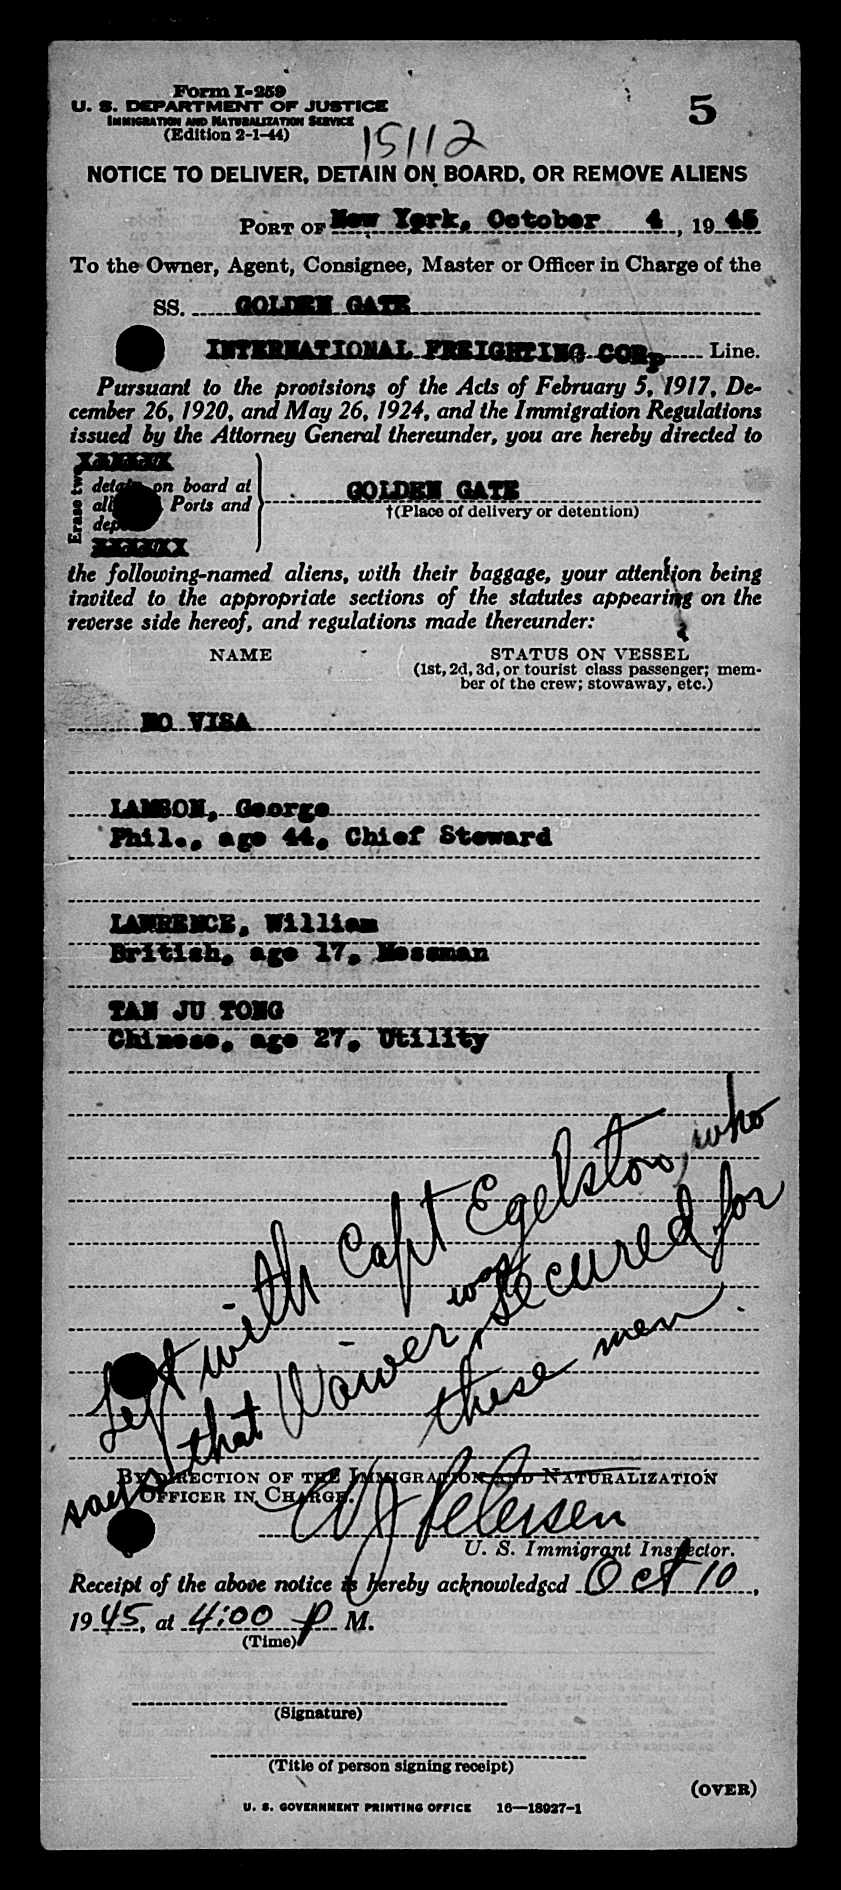 Form I-259
U. S. DEPARTMENT OF JUSTICE
IMMIGRATION AND NATURALIZATION SERVICE
(Edition 2-1-44)
5
15112
NOTICE TO DELIVER, DETAIN ON BOARD, OR REMOVE ALIENS
PORT OF New York, October 4, 1945
To the Owner, Agent, Consignee, Master or Officer in Charge of the
SS. GOLDEN GATE
INTERNATIONAL FREIGHTING CORp Line.
Pursuant to the provisions of the Acts of February 5, 1917, De-
cember 26, 1920, and May 26, 1924, and the Immigration Regulations
issued by the Attorney General thereunder, you are hereby directed to
XXXXXX
Erase two
detain on board at
all Ports and
GOLDEN GATE
†(Place of delivery or detention)
XXXXXX
the following-named aliens, with their baggage, your attention being
invited to the appropriate sections of the statutes appearing on the
reverse side hereof, and regulations made thereunder:
NAME
STATUS ON VESSEL
(1st, 2d, 3d, or tourist class passenger; mem-
ber of the crew; stowaway, etc.)
NO VISA
LAMSON, George
Phil., age 44, Chief Steward
LAWRENCE, William
British, age 17, Messman
TAN JU TONG
Chinese, age 27, Utility
Left with Capt Egelston, who
says that Waiver was secured for
these men.
BY DIRECTION OF THE IMMIGRATION AND NATURALIZATION
OFFICER IN CHARGE.
Petersen
U. S. Immigrant Inspector.
Receipt of the above notice is hereby acknowledged Oct 10,
1945, at 4:00 P M.
(Time)
(Signature)
(Title of person signing receipt)
(OVER)
U. S. GOVERNMENT PRINTING OFFICE 16—18027-1